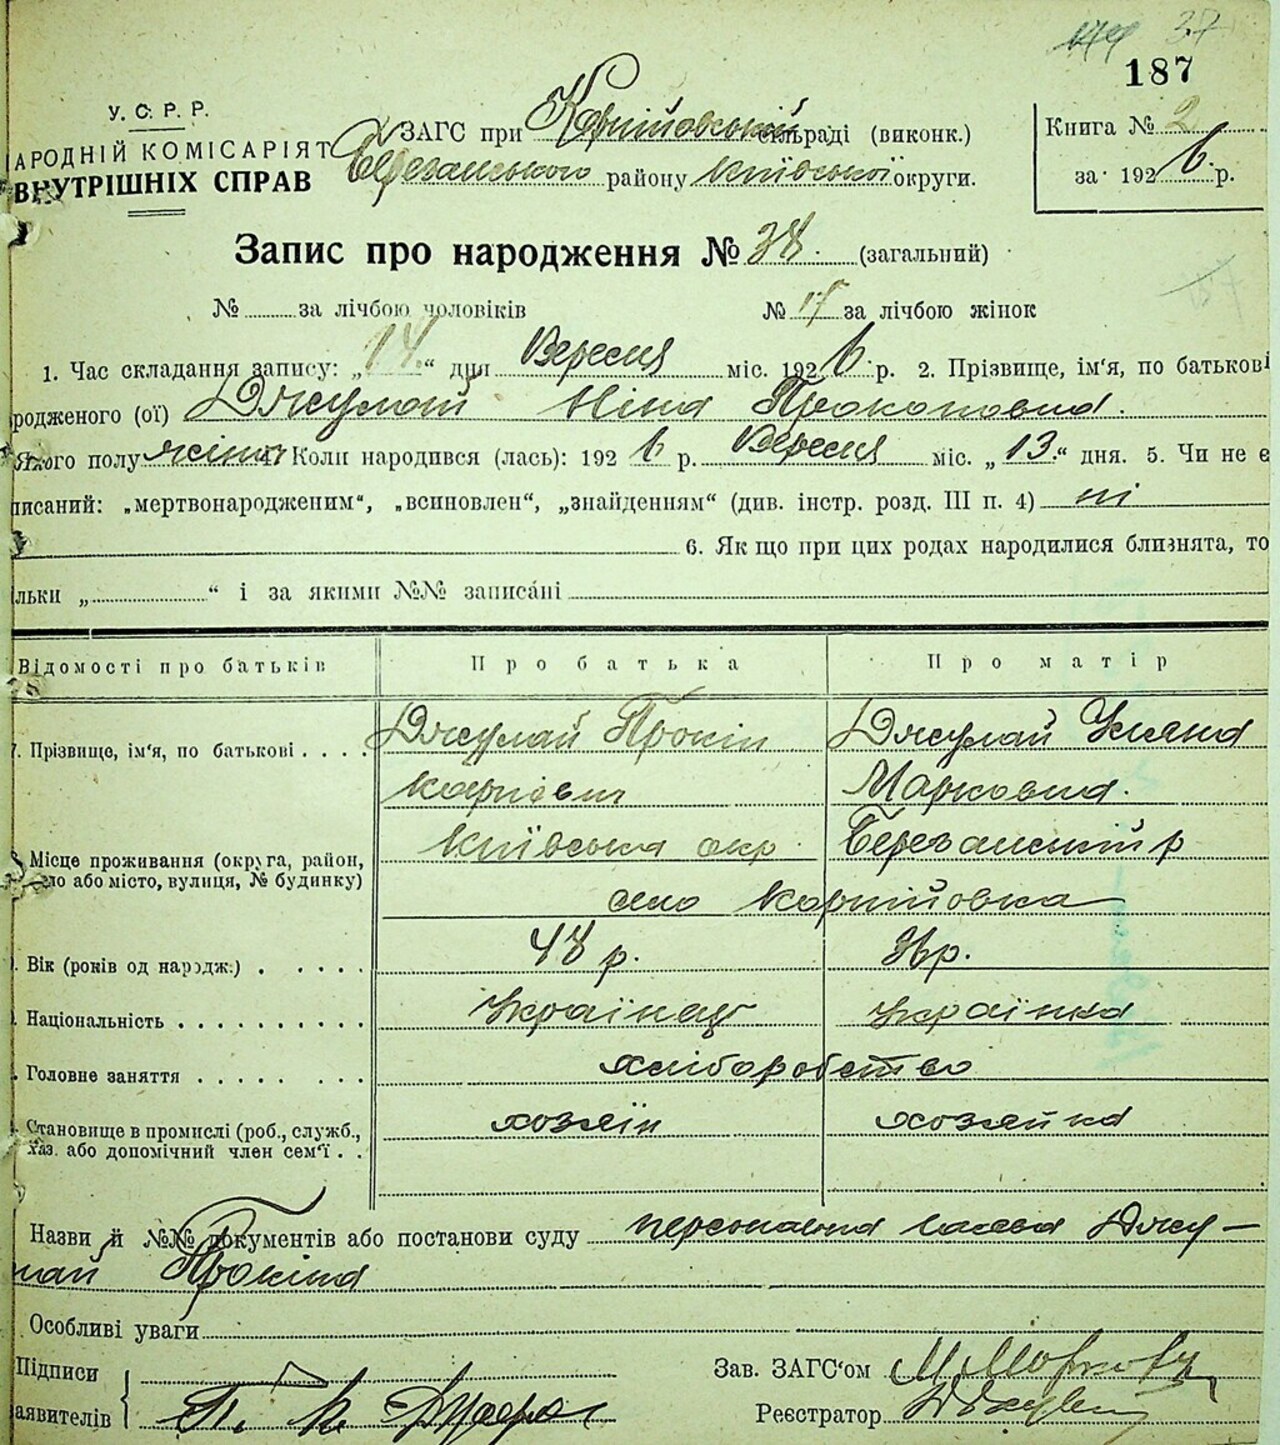 37
187
У. С. Р. Р.
АРОДНІЙ КОМІСАРІЯТ
ВНУТРІШНІХ СПРАВ
ЗАГС при сільраді (виконк.)
Березанського району Київської округи.
Книга № 2
за 1926 р.
Запис про народження № 38. (загальний)
№ за лічбою чоловіків № 17 за лічбою жінок
1. Час складання запису: „14.“ дня Вересня міс. 1926 р. 2. Прізвище, ім'я, по батькові
родженого (ої) Джулай Ніна Прокоповна.
Якого полу жіноч 4. Коли народився (лась): 1926 р. Вересня міс. „13.“ дня. 5. Чи не є
писаний: „мертвонародженим“, „всиновлен“, „знайденням“ (див. інстр. розд. III п. 4) ні
6. Як що при цих родах народилися близнята, то
льки „ “ і за якими №№ записані
Відомості про батьків Про батька Про матір
7. Прізвище, ім'я, по батькові . . . . Джулай Прокіп Джулай Уляна
Карпович Марковна.
Київська окр. Березанський р
Місце проживання (округа, район,
ло або місто, вулиця, № будинку)
село Корніївка
Вік (років од народж.) . . . . . 48 р. 36 р.
Національність . . . . . . . . . . Українец Українка
Головне заняття . . . . . . . . хліборобство
Становище в промислі (роб., служб., хозяїн хозяйка
хаз. або допомічний член сем'ї . .
Назви й №№ документів або постанови суду персональна заява Джу-
лай Прокіпа
Особливі уваги
Підписи
аявителів
Зав. ЗАГС'ом
Реєстратор